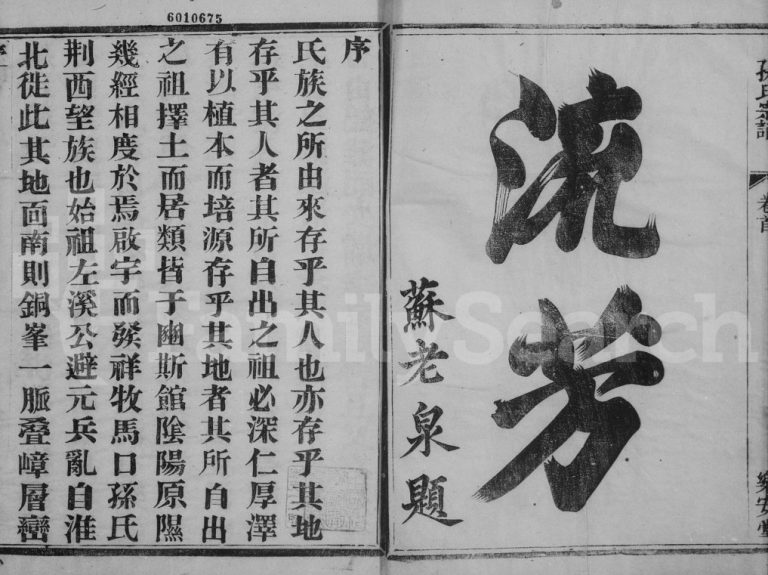 6010675
孫氏宗譜
卷首
樂安堂
流芳
蘇老泉題
序
氏族之所由來存乎其人也亦存乎其地
存乎其人者其所自出之祖必深仁厚澤
有以植本而培源存乎其地者其所自出
之祖擇土而居類皆于豳斯館陰陽原隰
幾經相度於焉啟宇而發祥牧馬口孫氏
荆西望族也始祖左溪公避元兵亂自淮
北徙此其地面南則銅峯一脈叠嶂層巒
FamilySearch